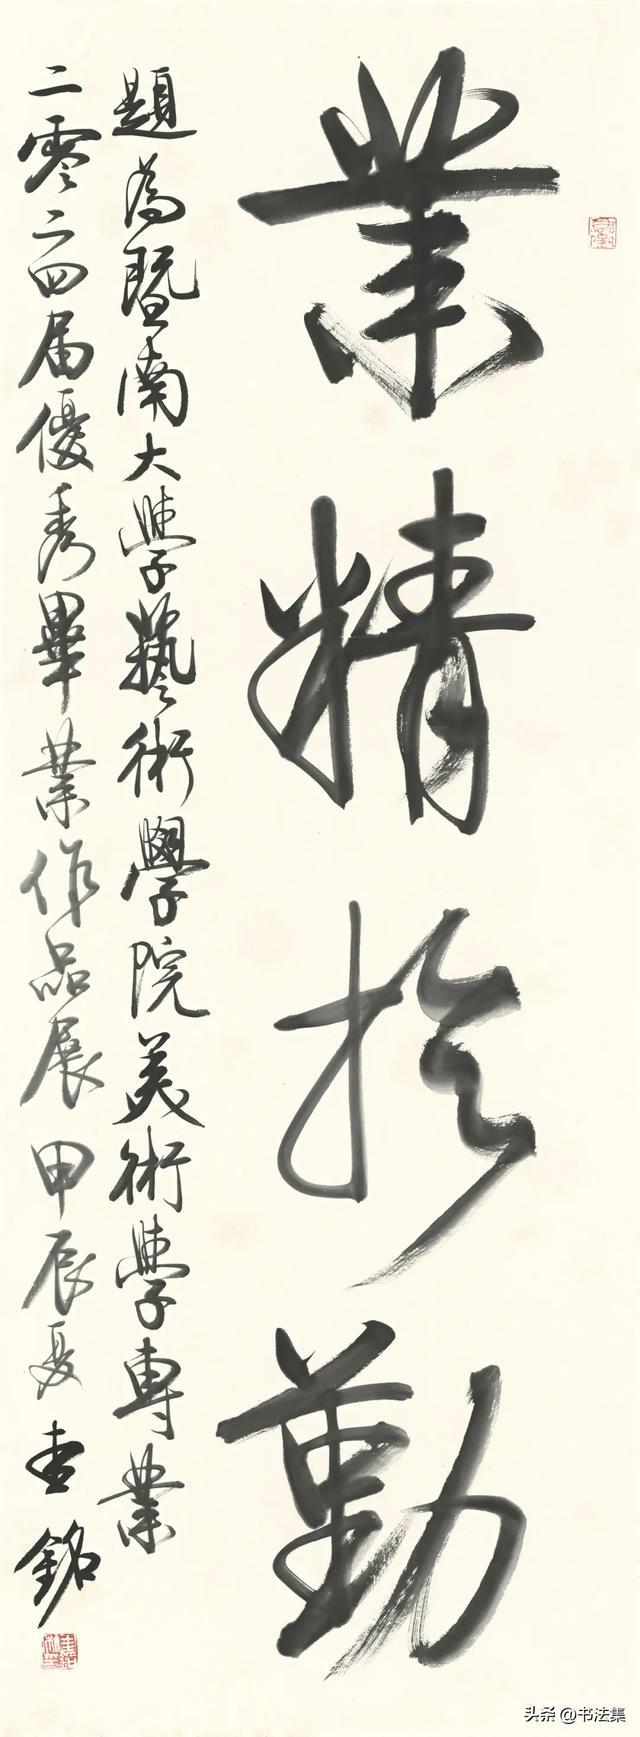 業精扵勤
題為暨南大學藝術學院美術學專業
二零二四届優秀畢業作品展 甲辰夏 銘
头条 @书法集